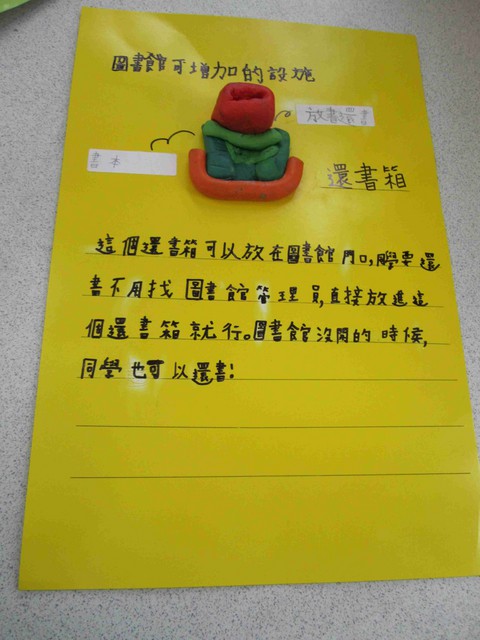 圖書館可增加的設施
放書還書
書本
還書箱
這個還書箱可以放在圖書館門口,學要還
書不用找圖書館管理員,直接放進這
個還書箱就行。圖書館沒開的時候,
同學也可以還書!